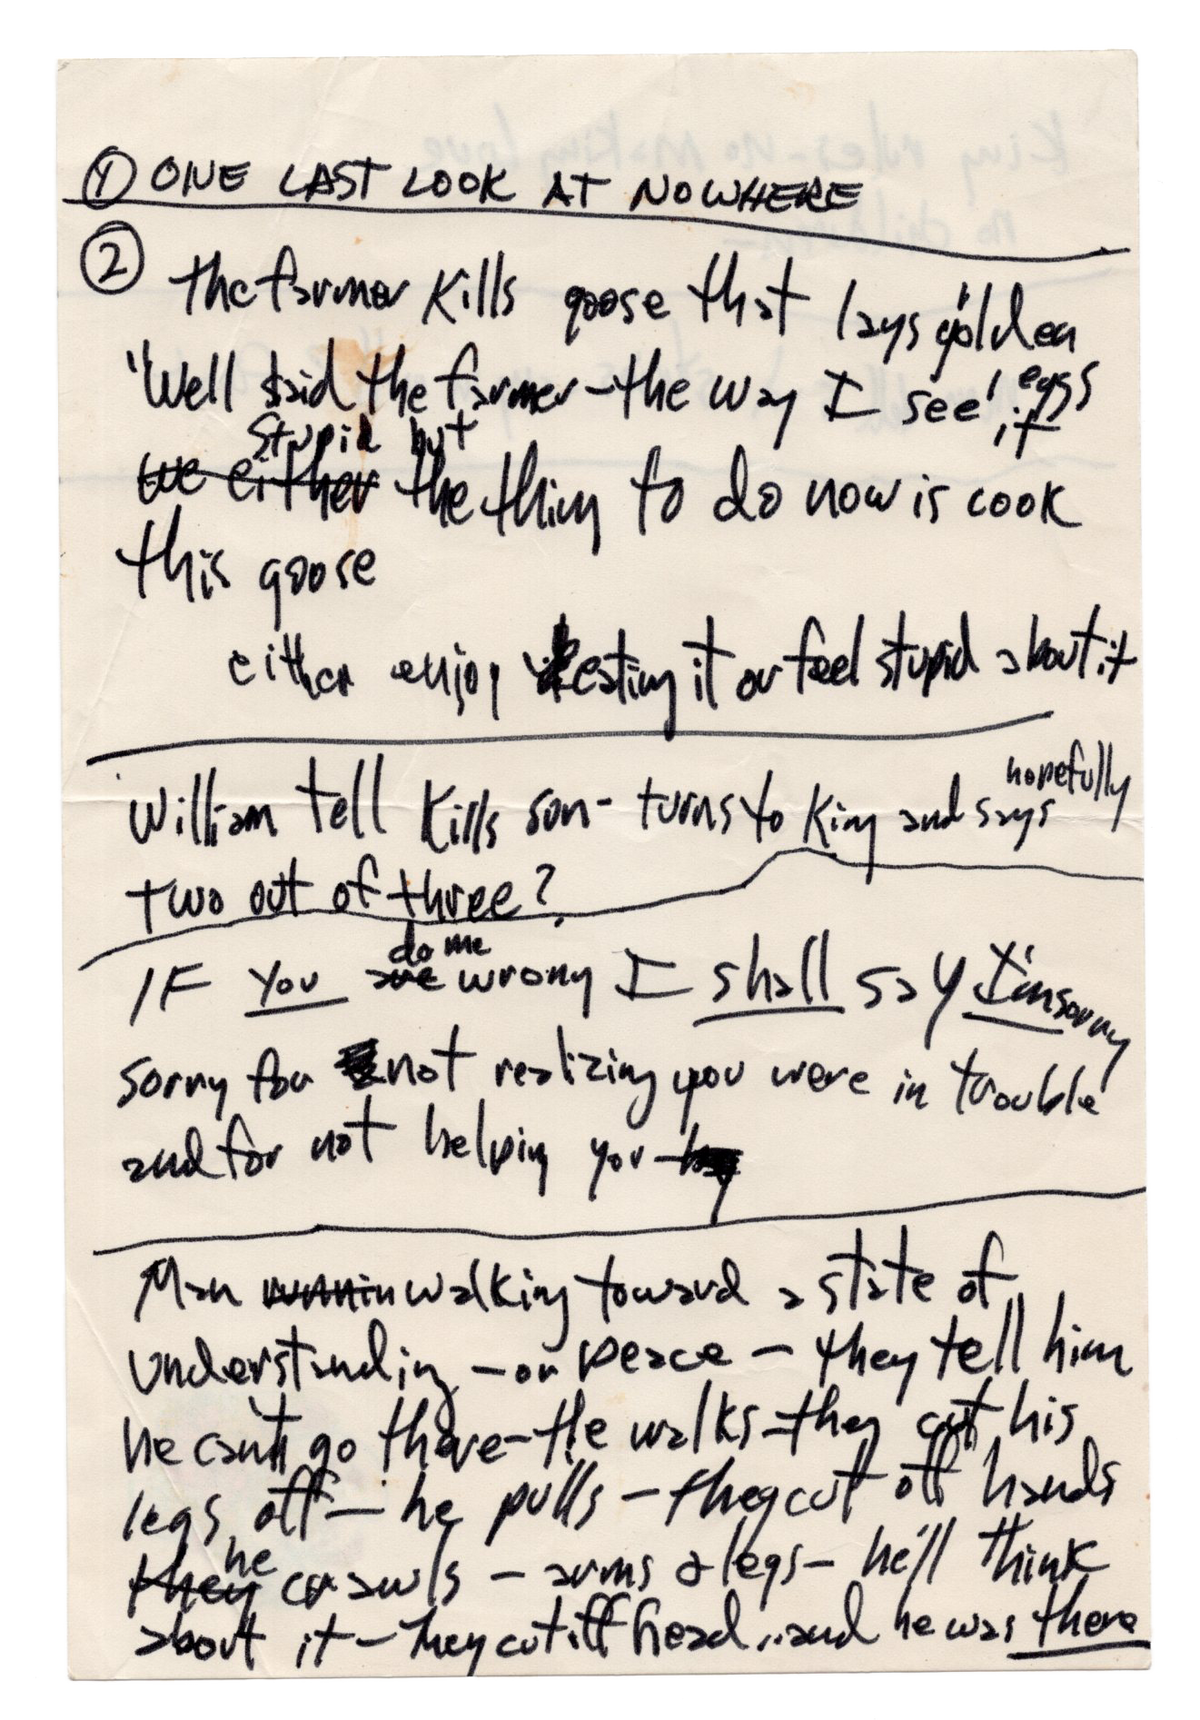 ① ONE LAST LOOK AT NOWHERE
② The farmer kills goose that lays golden
eggs
"Well said the farmer - the way I see it
stupid but
we either the thing to do now is cook
this goose
either enjoy eating it or feel stupid about it
William tell kills son - turns to King and says hopefully
two out of three?
do me
IF you are wrong I shall say I'm sorry
sorry for not realizing you were in trouble
and for not helping you
Man runnin walking toward a state of
understanding - or peace - they tell him
he can't go there - He walks - they cut his
legs off - he pulls - they cut off hands
he
they crawls - arms & legs - he'll think
about it - they cut off head... and he was there